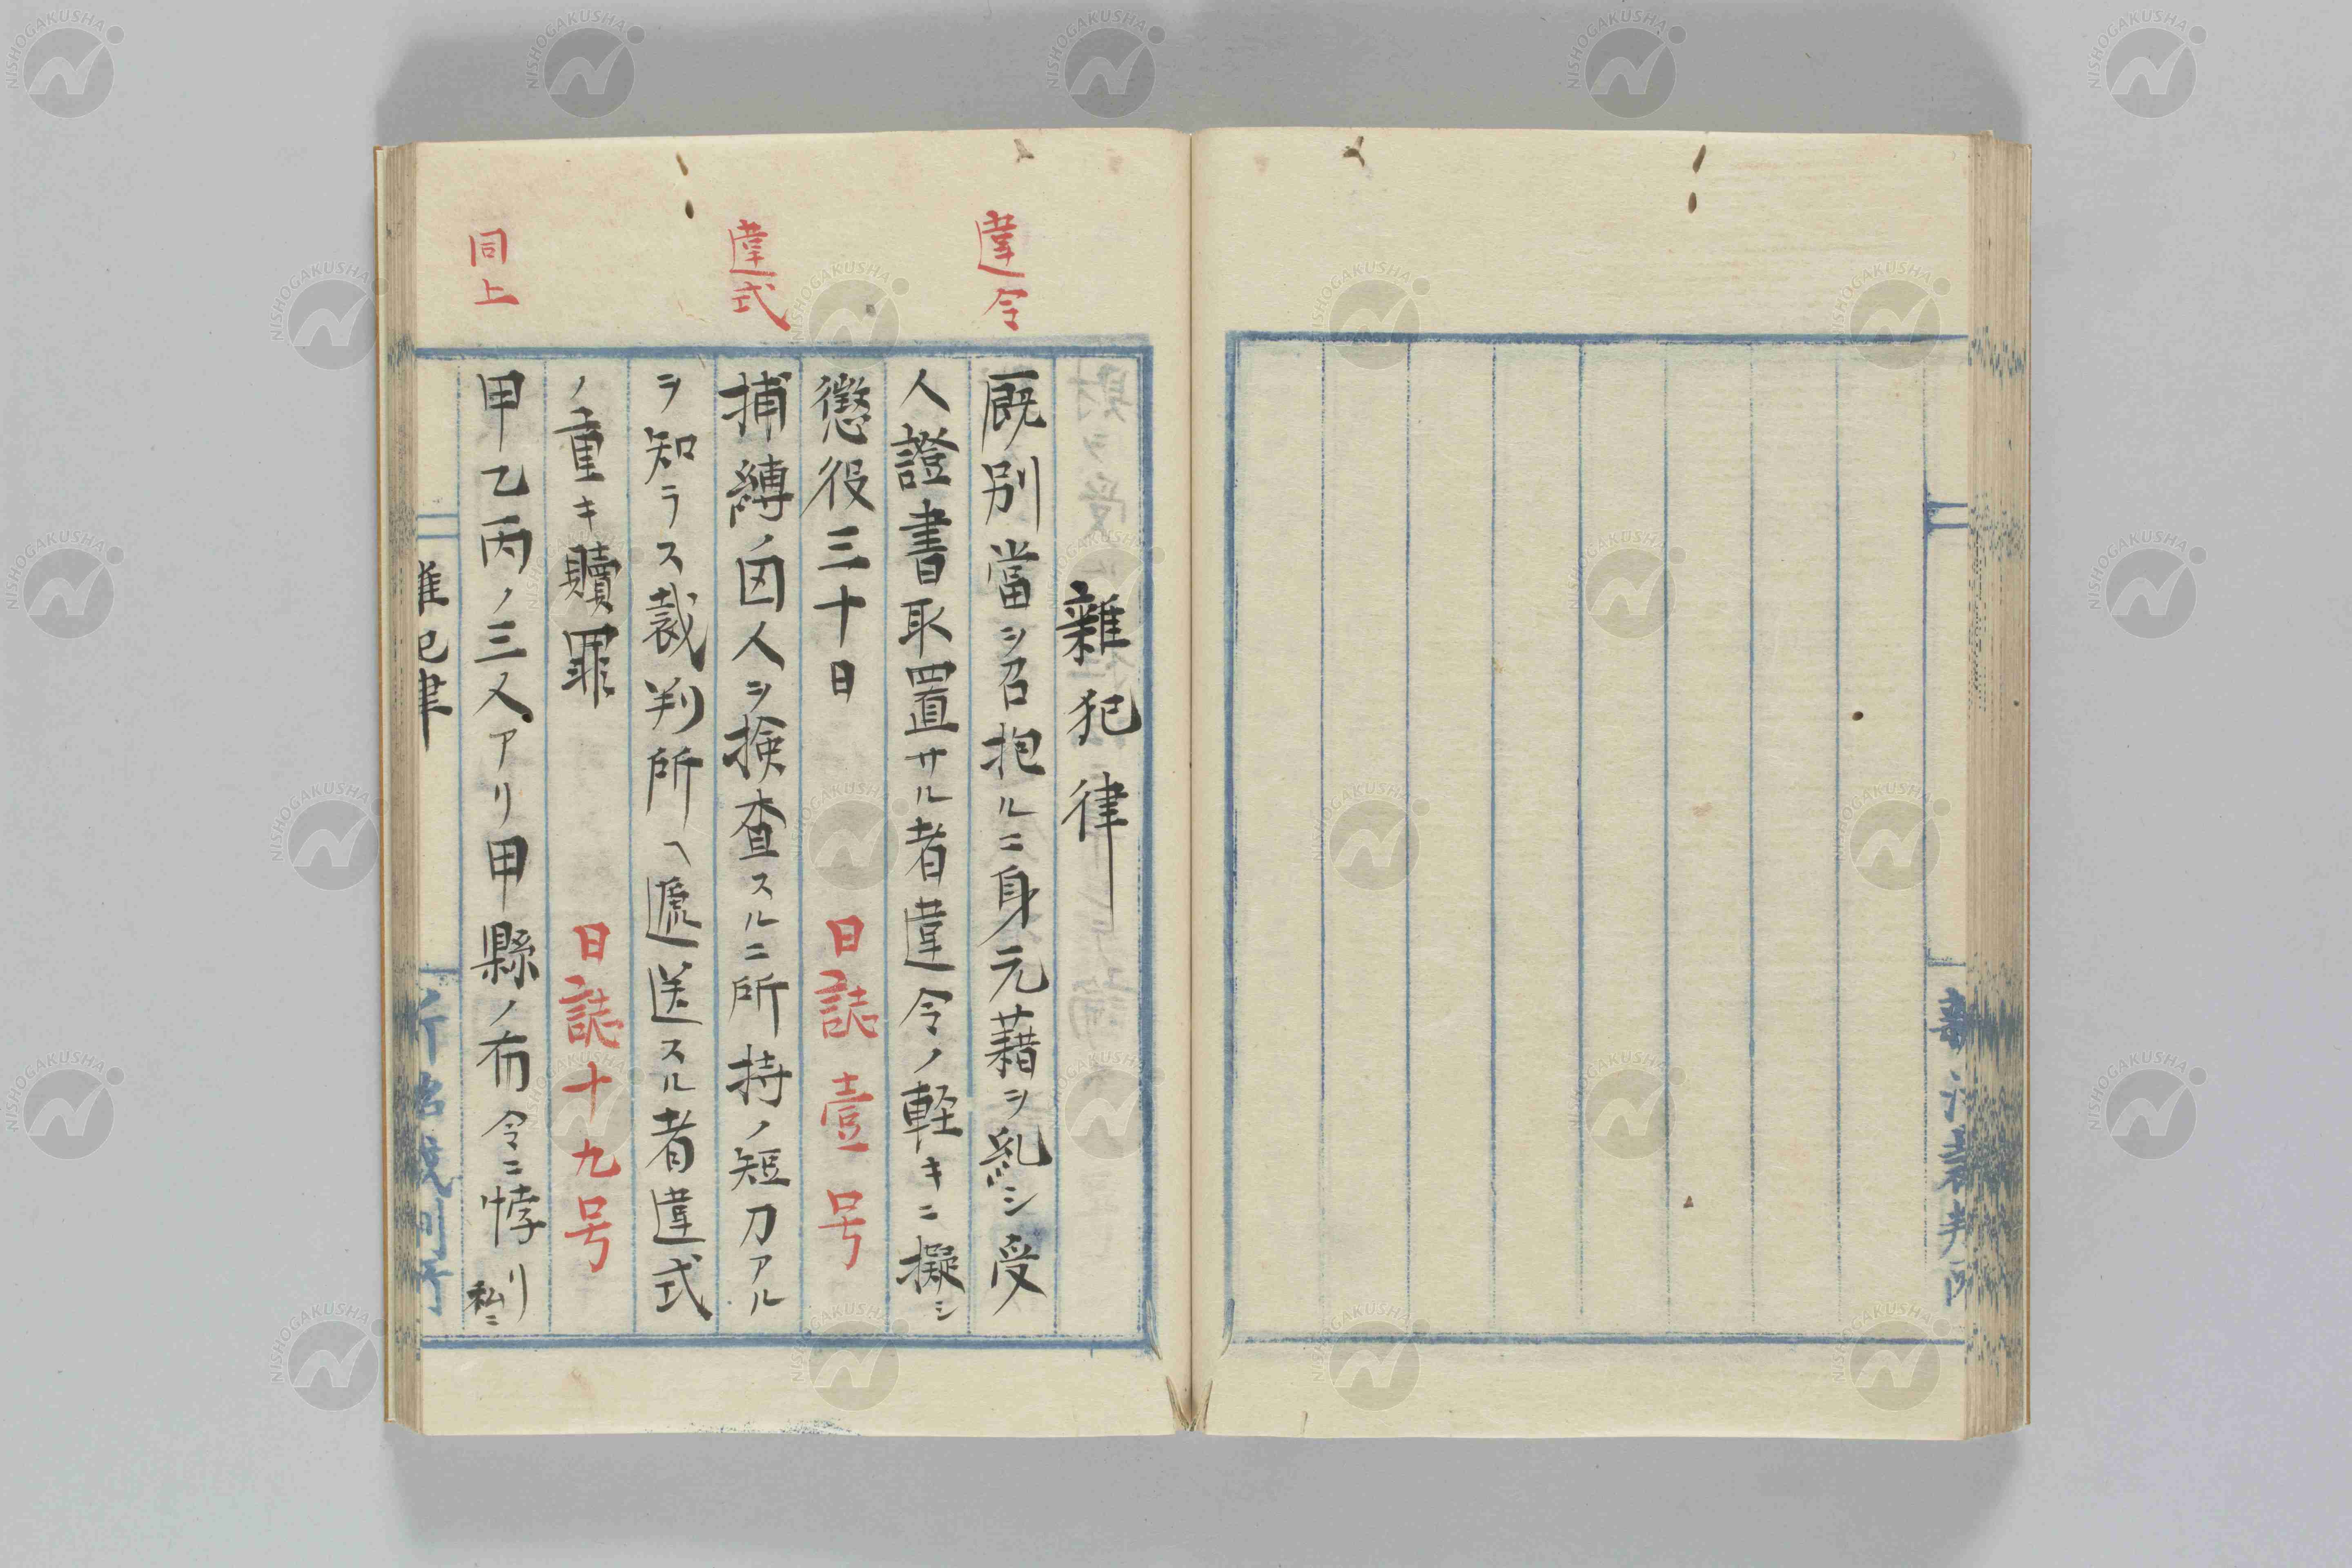 雜犯律
違令
厩別當ヲ召抱ルニ身元藉ヲ乱シ受
人證書取置サル者違令ノ軽キニ擬シ
懲役三十日
日誌壹号
違式
捕縛ノ囚人ヲ検査スルニ所持ノ短刀アル
ヲ知ラス裁判所ヘ遞送スル者違式
ノ重キ贖罪
日誌十九号
同上
甲乙丙ノ三人アリ甲縣ノ布令ニ悖リ私ニ
雜犯律
NISHOGAKUSHA